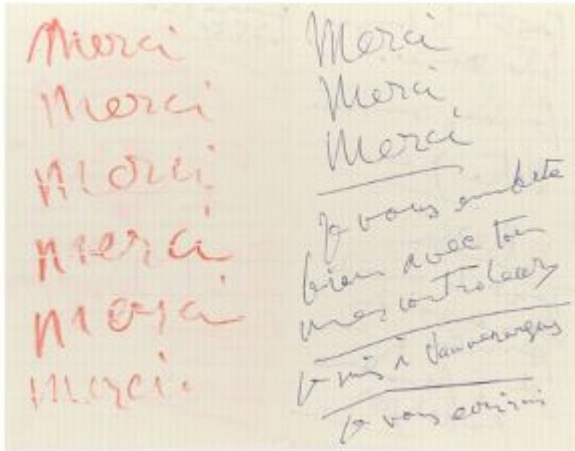 Merci
Merci
Merci
merci
merci
merci.
Merci
Merci
Merci
Je vous embête
bien avec tous
mes controleurs
Je suis à
Je vous écrirai